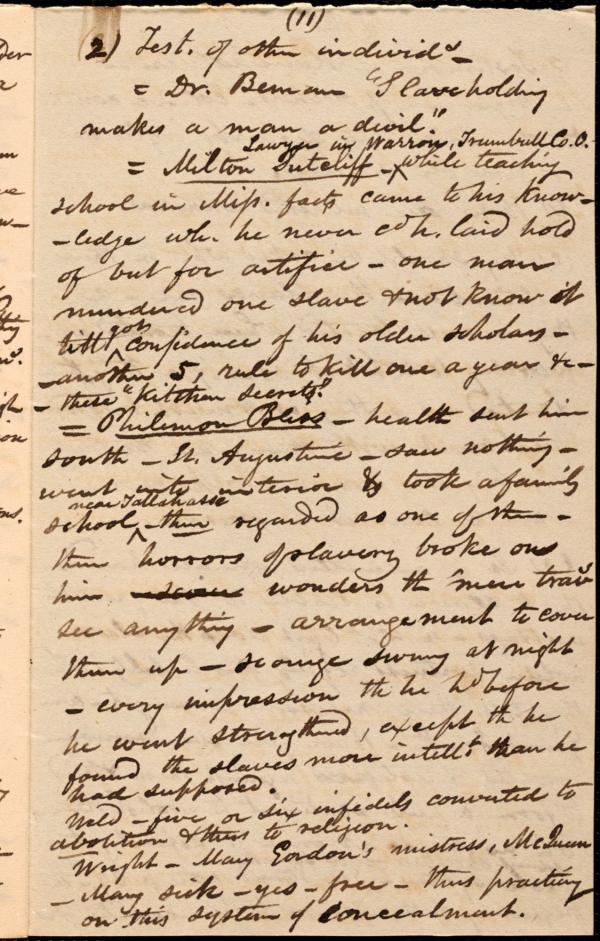 (11)
2) Test. of other individs —
= Dr. Beman "Slaveholding
makes a man a devil."
Lawyer in Warren, Trumbull Co. O.
= Milton Sutcliff — while teaching
school in Miss. facts came to his know-
-ledge wh. he never cd h. laid hold
of but for artifice — one man
murdered one slave & not know it
till gots confidence of his older scholars —
— another 5, rule to kill one a year &c —
— these "Kitchen secrets."
= Philemon Bliss — health sent him
south — St. Augustine — saw nothing —
went into interior & took a family
near Tallahasse
school — then regarded as one of them —
then horrors of slavery broke on
him wonders th mere travs
see anything — arrangement to cover
them up — scourge swung at night
— every impression th he hd before
he went strengthened, except th he
found the slaves more intellt than he
had supposed.
Weld — five or six infidels converted to
abolition & thus to religion.
Wright — Mary Gordon's mistress, McQueen
— Mary sick — yes — free — thus practising
on this system of concealment.